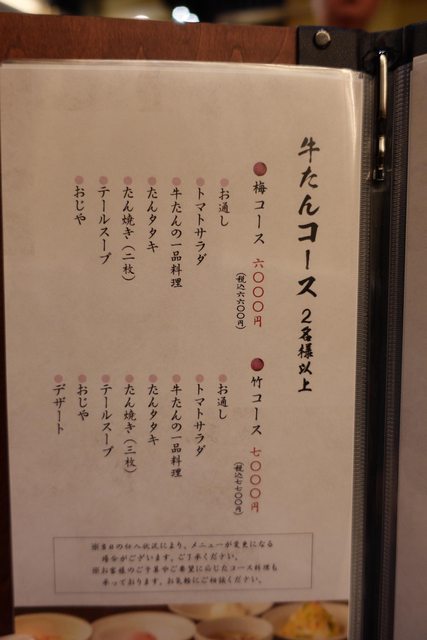 牛たんコース 2名様以上
梅コース 六〇〇〇円
(税込六六〇〇円)
お通し
トマトサラダ
牛たんの一品料理
たんタタキ
たん焼き(二枚)
テールスープ
おじや
竹コース 七〇〇〇円
(税込七七〇〇円)
お通し
トマトサラダ
牛たんの一品料理
たんタタキ
たん焼き(三枚)
テールスープ
おじや
デザート
※当日の仕入状況により、メニューが変更になる
場合がございます。ご了承ください。
※お客様のご予算やご要望に応じたコース料理も
承っております。お気軽にご相談ください。